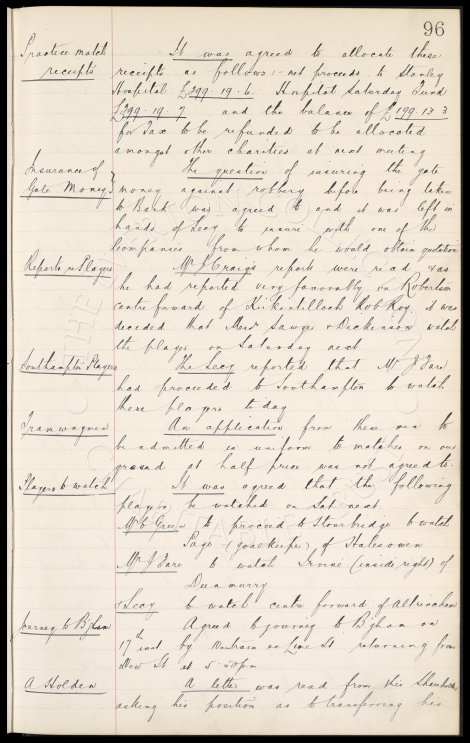 96
Practice match
receipts
It was agreed to allocate these
receipts as follows :- net proceeds to Stanley
Hospital £399-19-6. Hospital Saturday Fund
£399-19-7 and the balance of £199.13.3
for Tax to be refunded to be allocated
amongst other charities at next meeting
Insurance of
Gate Money
The question of insuring the gate
money against robbery before being taken
to Bank was agreed to and it was left in
hands of Secy to insure with one of the
Companies from whom he would obtain quotation
Reports re Players
Mr J Craig's reports were read & as
he had reported very favorably on Robertson
centre forward of Kirkintilloch Rob Roy it was
decided that Messrs Sawyer & Dickenson watch
the player on Saturday next
Southampton Players
The Secy reported that Mr J Fare
had proceeded to Southampton to watch
these players to day
Tramwaymen
An application from these men to
be admitted in uniform to matches on our
ground at half price was not agreed to.
Players to watch
It was agreed that the following
players be watched on Sat next
Mr C Green to proceed to Stourbridge to watch
Page (goalkeeper) of Halesowen
Mr J Fare to watch Irvine (inside right) of
Dunmurry
& Secy to watch centre forward of Altrincham
Journey to B'ham
Agreed to journey to B'gham on
17th inst by train ex Lime St returning from
New St at 5-50pm.
A Holden
A letter was read from this Shareholder
asking his position as to transferring his